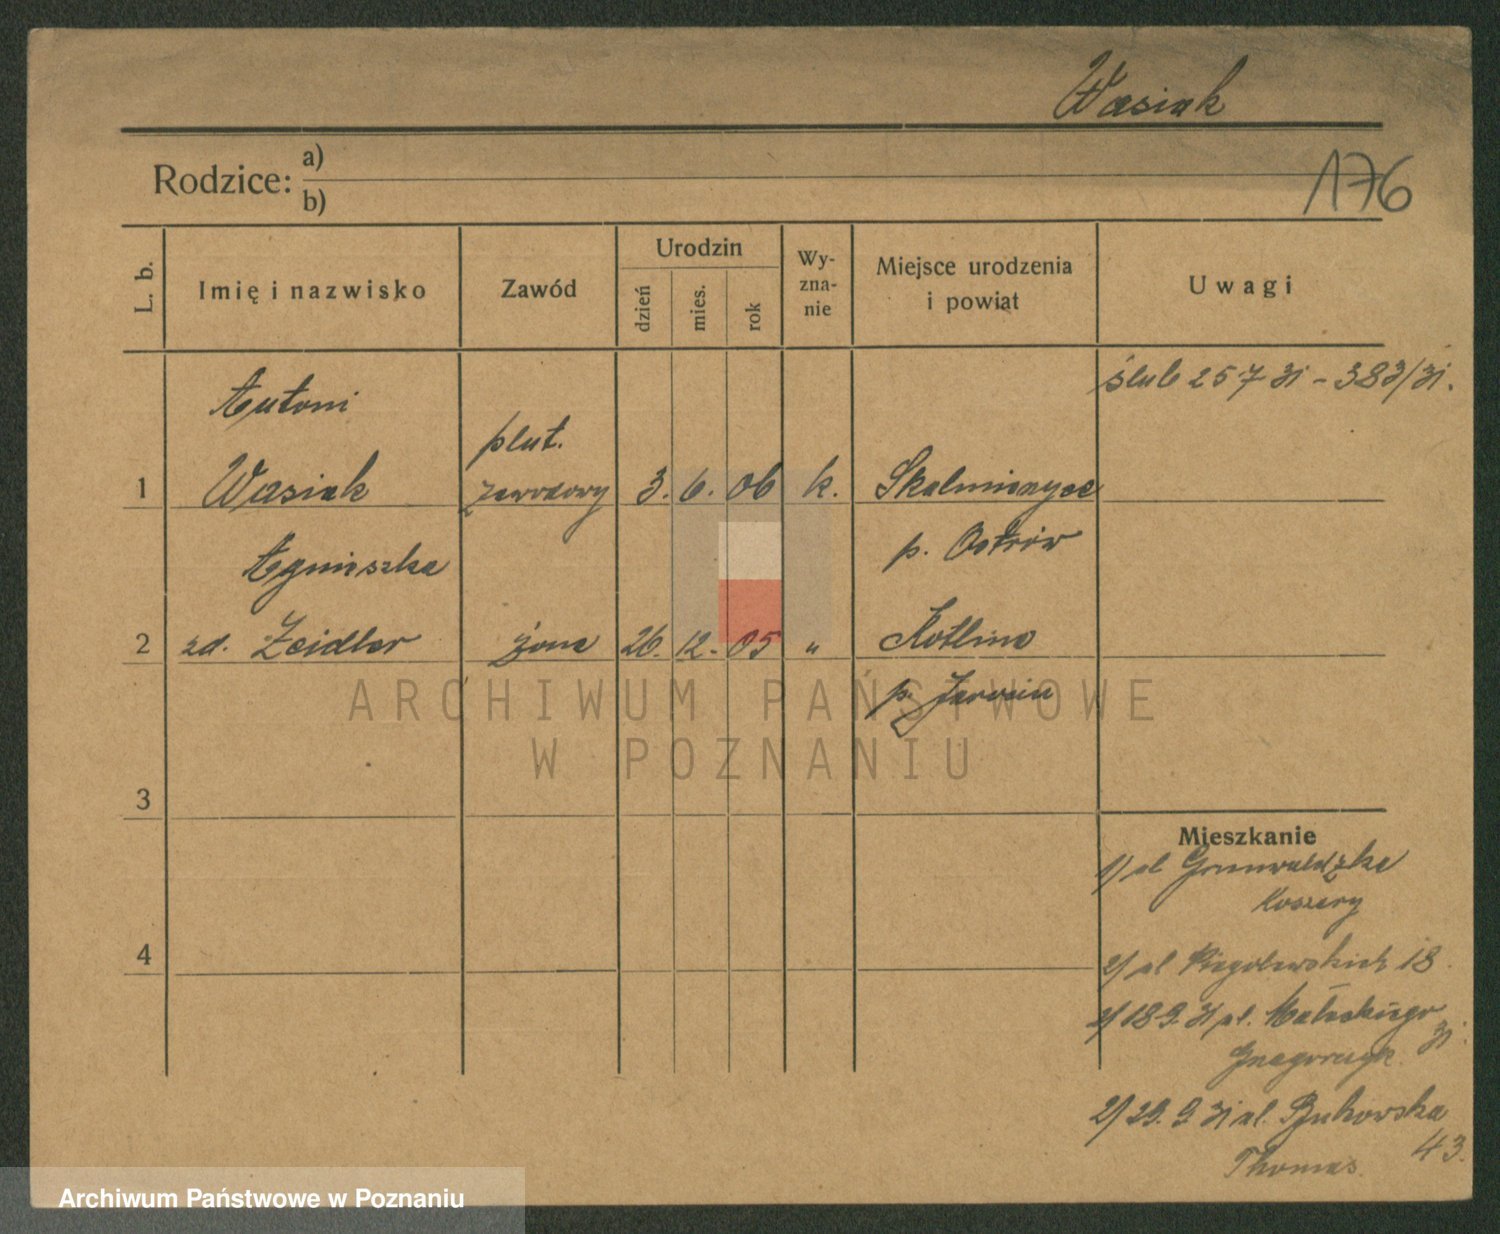 Wasiak
176
Rodzice: a)
b)
L. b.
Imię i nazwisko
Zawód
Urodzin
dzień
mies.
rok
Wy-
zna-
nie
Miejsce urodzenia
i powiat
Uwagi
ślub 25 7 31 - 383/31.
Antoni
plut.
1 Wasiak zawodowy 3. 6. 06 k. Skalmierzyce
p. Ostrów
Agnieszka
2 zd. Zeidler żona 26. 12. 05 " Kotlin
p. Jarocin
3
4
Mieszkanie
1) ul Grunwaldzka
Koszary
2) ul 18
2) 18 9. 31 ul. Małeckiego
31.
2) 29. 9 31 ul. Bukowska
43.
Thomas.
ARCHIWUM PAŃSTWOWE
W POZNANIU
Archiwum Państwowe w Poznaniu